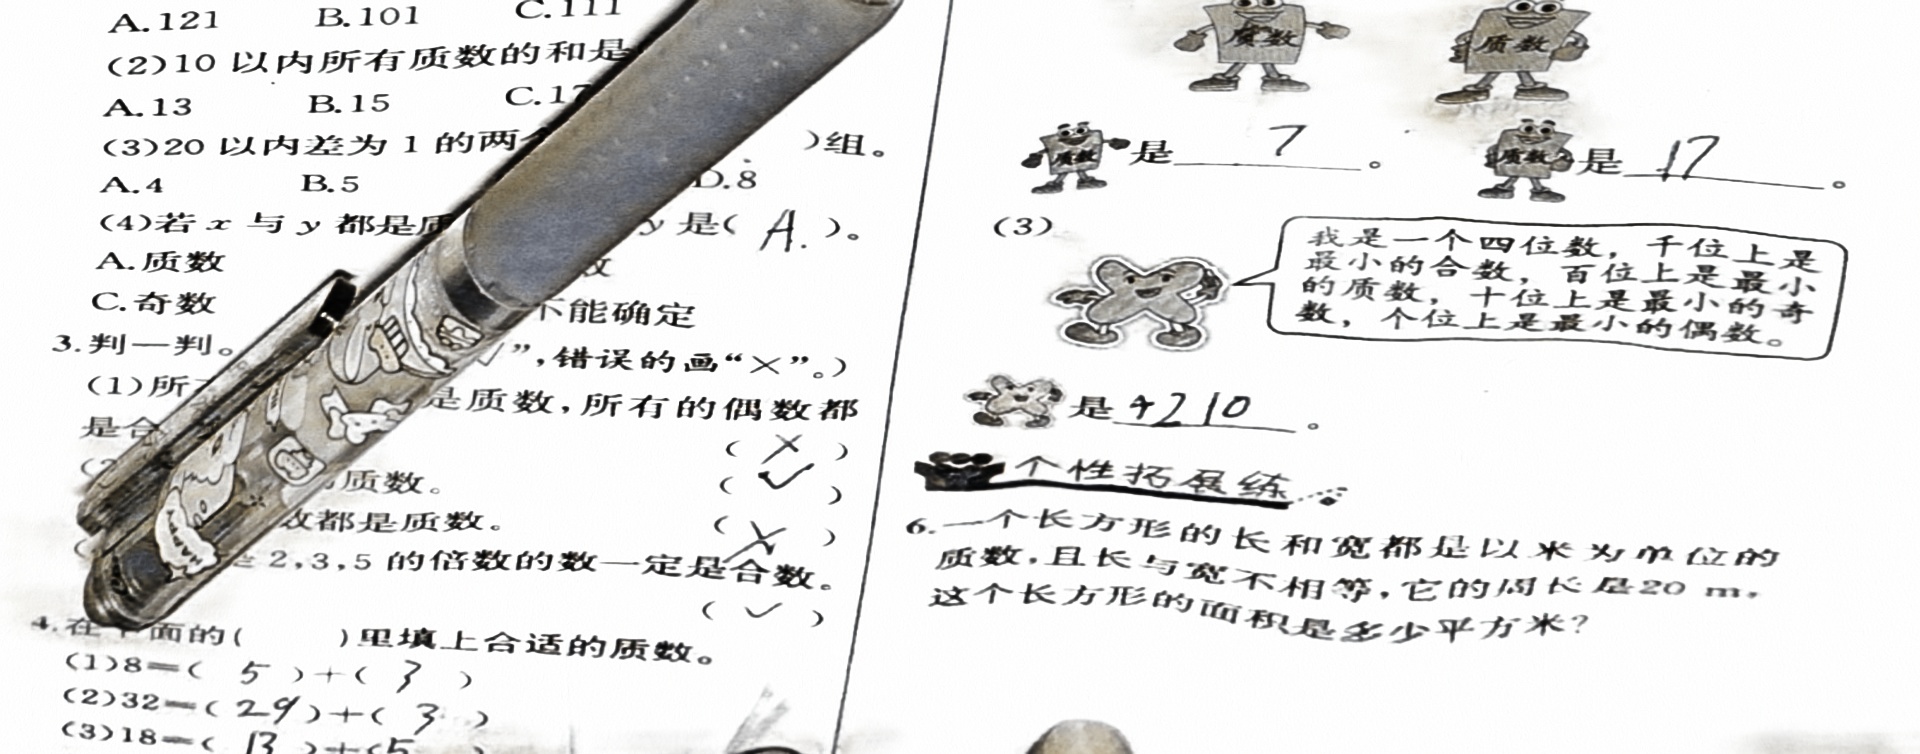 A.121 B.101 C.111
(2)10 以内所有质数的和是
A.13 B.15 C.17
(3)20 以内差为 1 的两 )组。
A.4 B.5 D.8
(4)若 x 与 y 都是质 y 是( A. )。
A.质数 数
C.奇数 不能确定
3.判一判。 √”,错误的画“×”。)
(1)所 是质数,所有的偶数都
是合
( × )
质数。 ( √ )
数都是质数。 ( × )
2,3,5 的倍数的数一定是合数。
( √ )
4.在下面的( )里填上合适的质数。
(1)8=( 5 )+( 3 )
(2)32=( 29 )+( 3 )
(3)18=( 13 )+( 5 )
质数 质数
质数 是 7 。 质数 是 17 。
(3)
我是一个四位数，千位上是
最小的合数，百位上是最小
的质数，十位上是最小的奇
数，个位上是最小的偶数。
是 4210 。
个性拓展练
6.一个长方形的长和宽都是以米为单位的
质数,且长与宽不相等,它的周长是20 m,
这个长方形的面积是多少平方米?